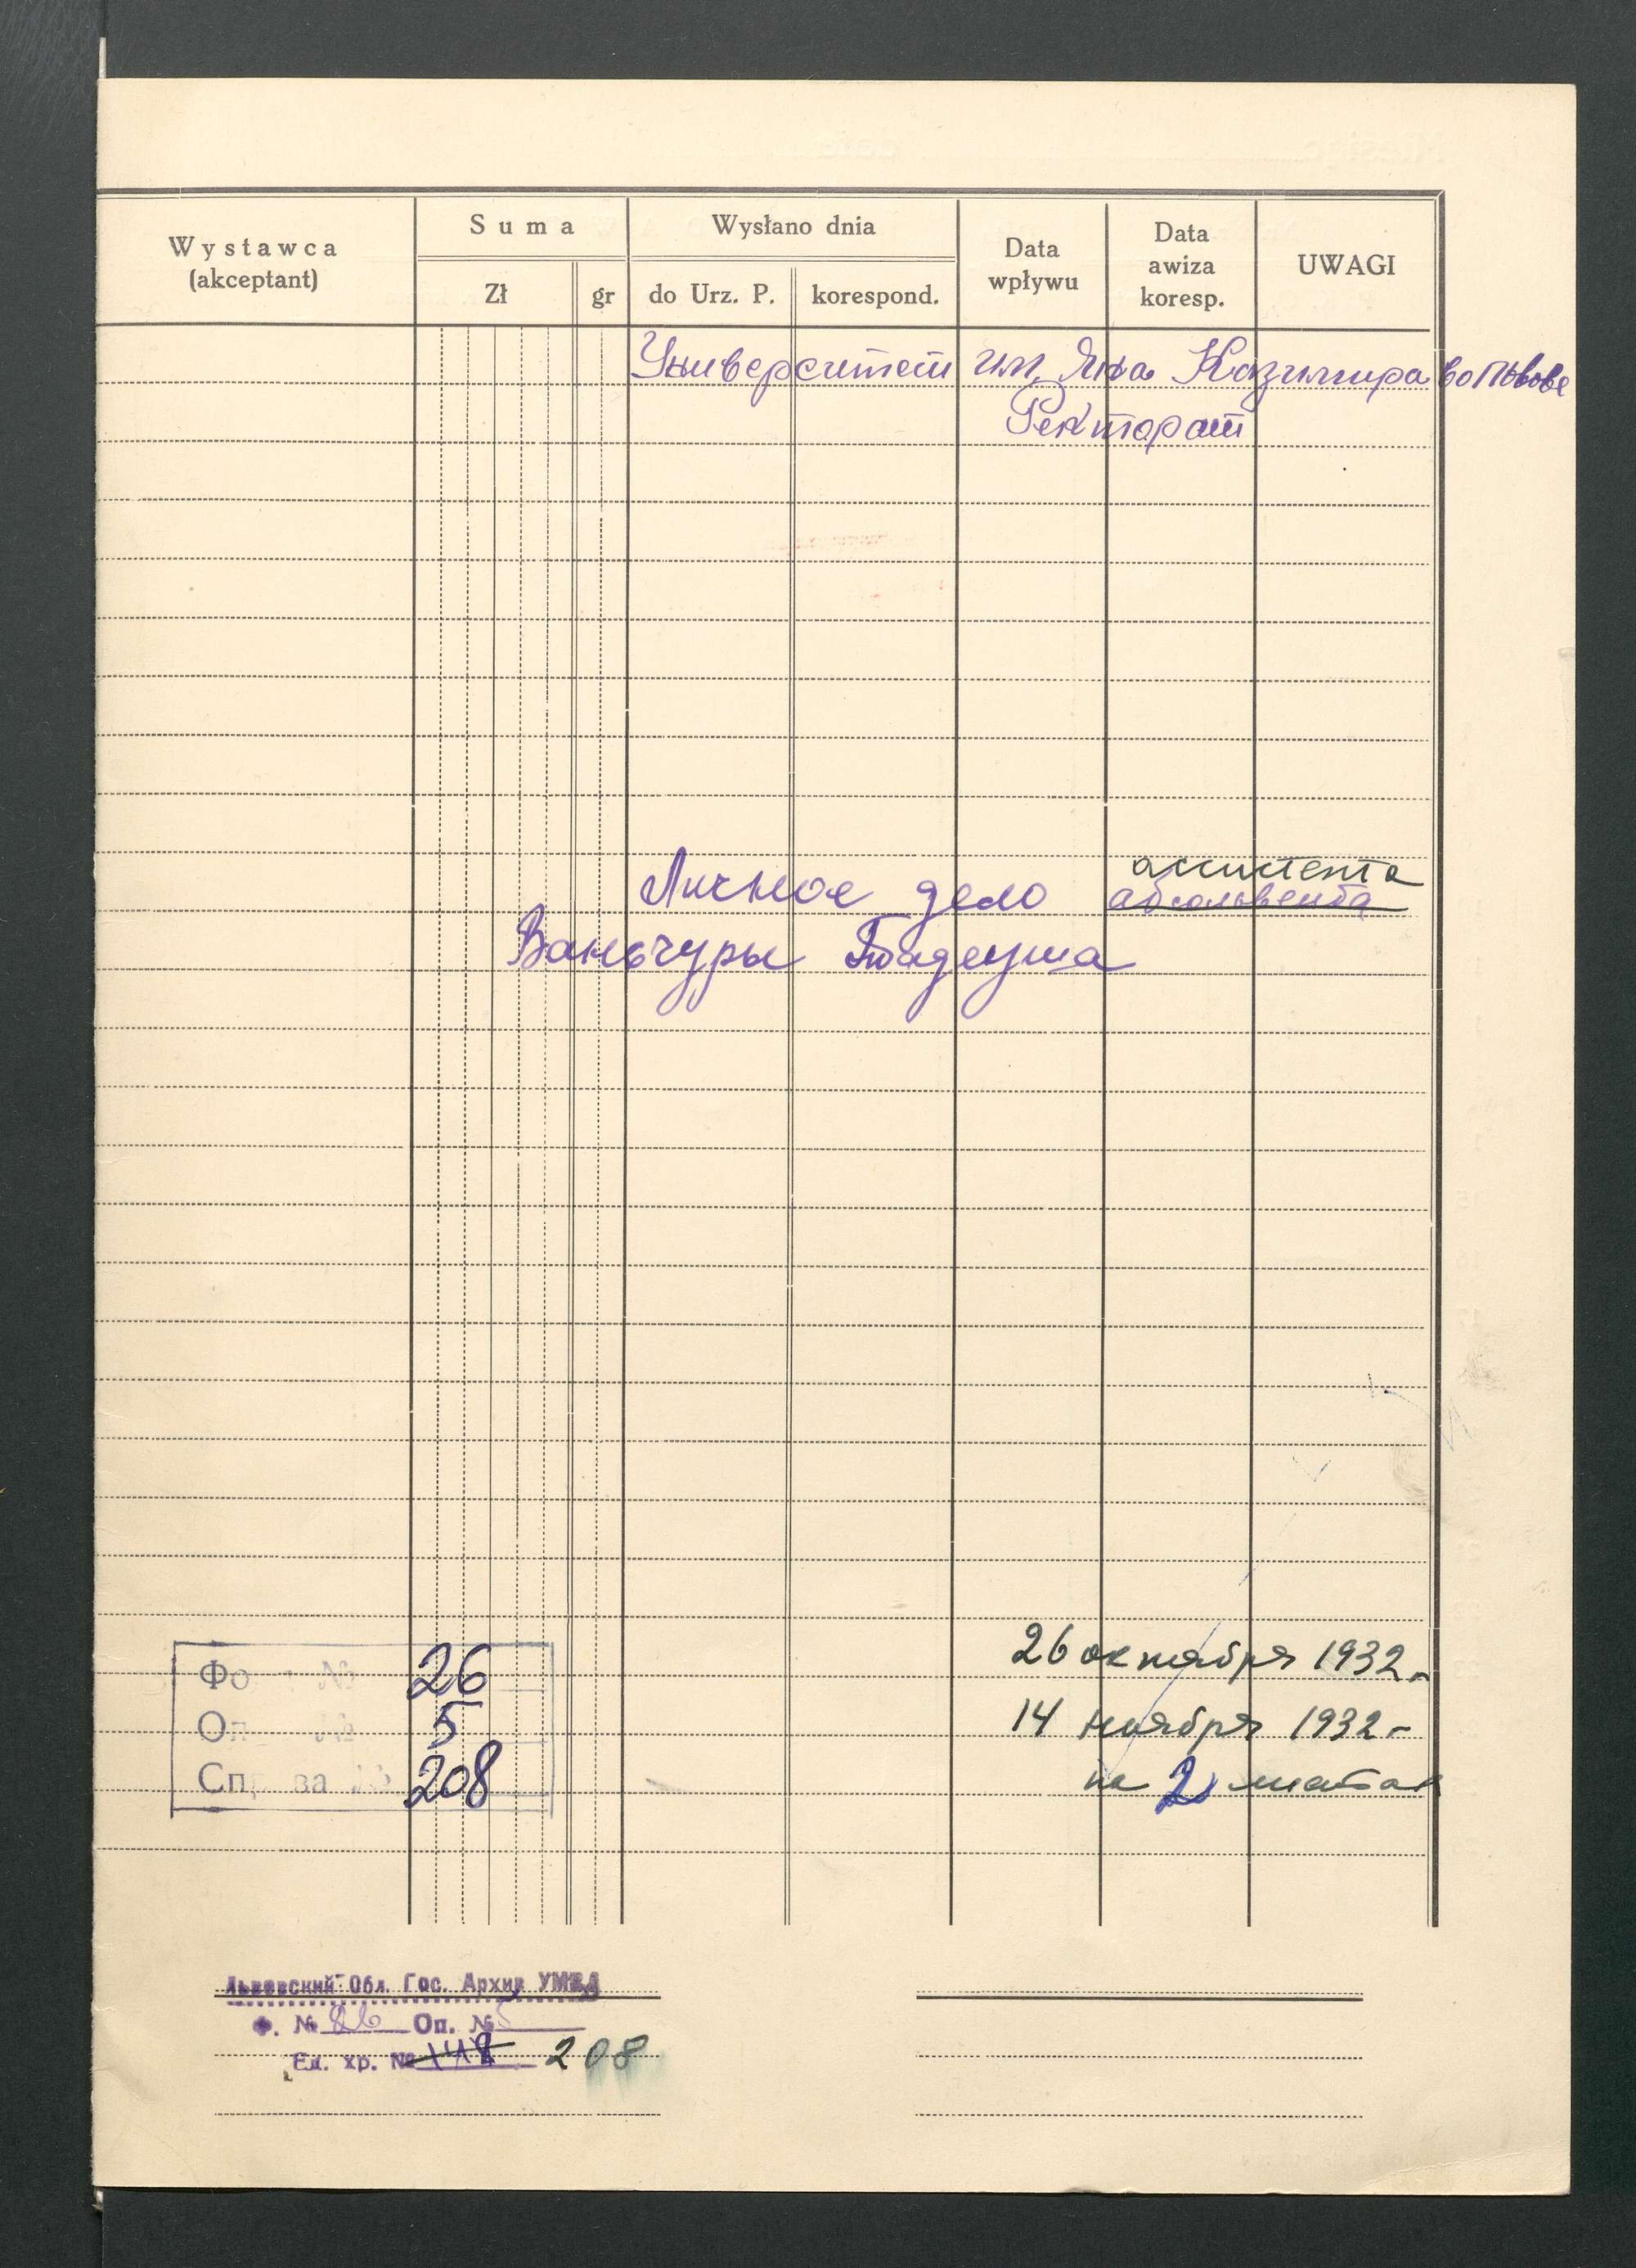 Wystawca
(akceptant)
Suma
Zł
gr
Wysłano dnia
do Urz. P.
korespond.
Data
wpływu
Data
awiza
koresp.
UWAGI
Университет им. Яна Казимира во Львове
Ректорат
ассистента
Личное дело абсольвента
Ваньчуры Тадеуша
Фо № 26
Оп № 5
Справа № 208
26 октября 1932 г
14 ноября 1932 г
на 2 листах
Львовский Обл. Гос. Архив УМВД
Ф. № 26 Оп. № 5
Ед. хр. № 148 208